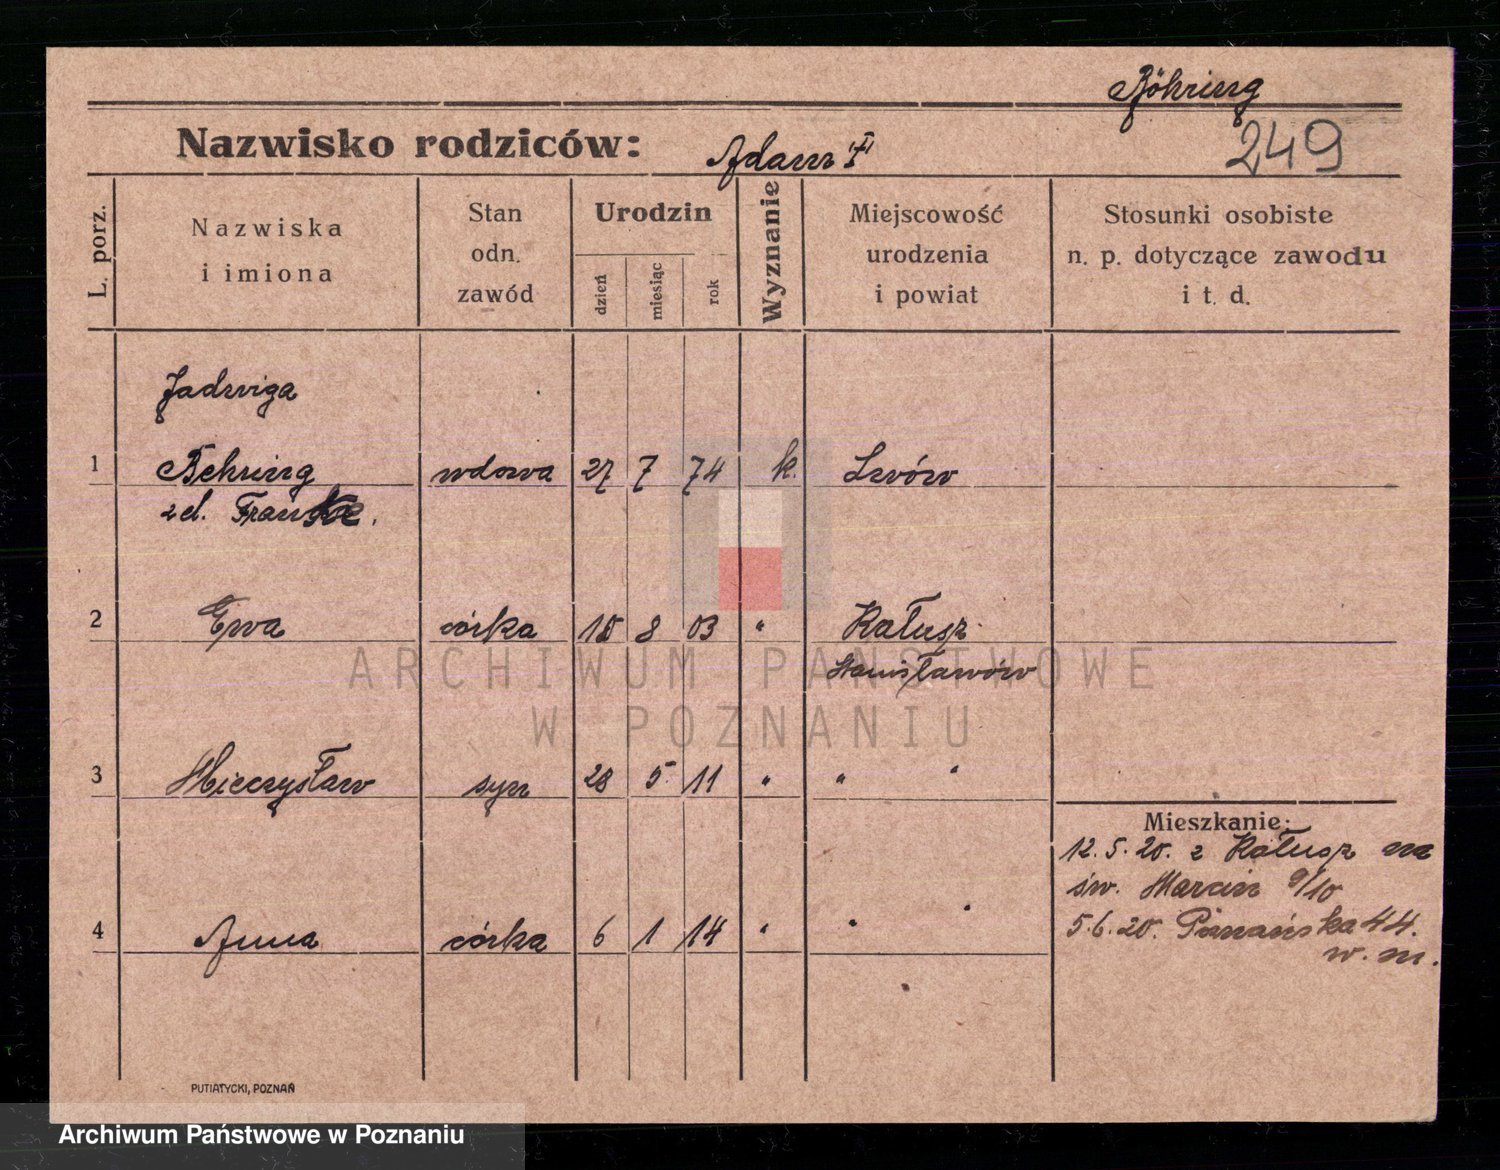 Böhring
Nazwisko rodziców: Adam "I"
249
L. porz.
Nazwiska
i imiona
Stan
odn.
zawód
Urodzin
dzień
miesiąc
rok
Wyznanie
Miejscowość
urodzenia
i powiat
Stosunki osobiste
n. p. dotyczące zawodu
i t. d.
Jadwiga
1 Behring wdowa 27 7 74 k. Lwów
z d. Franke.
2 Ewa córka 15 8 03 " Kałusz
Stanisławów
ARCHIWUM PAŃSTWOWE
W POZNANIU
3 Mieczysław syn 28 5 11 " " "
Mieszkanie:
12.5.20. z Kałusz na
św. Marcin 9/10
4 Anna córka 6 1 14 " " "
5.6.20. Poznańska 44.
w. m.
PUTIATYCKI, POZNAŃ
Archiwum Państwowe w Poznaniu